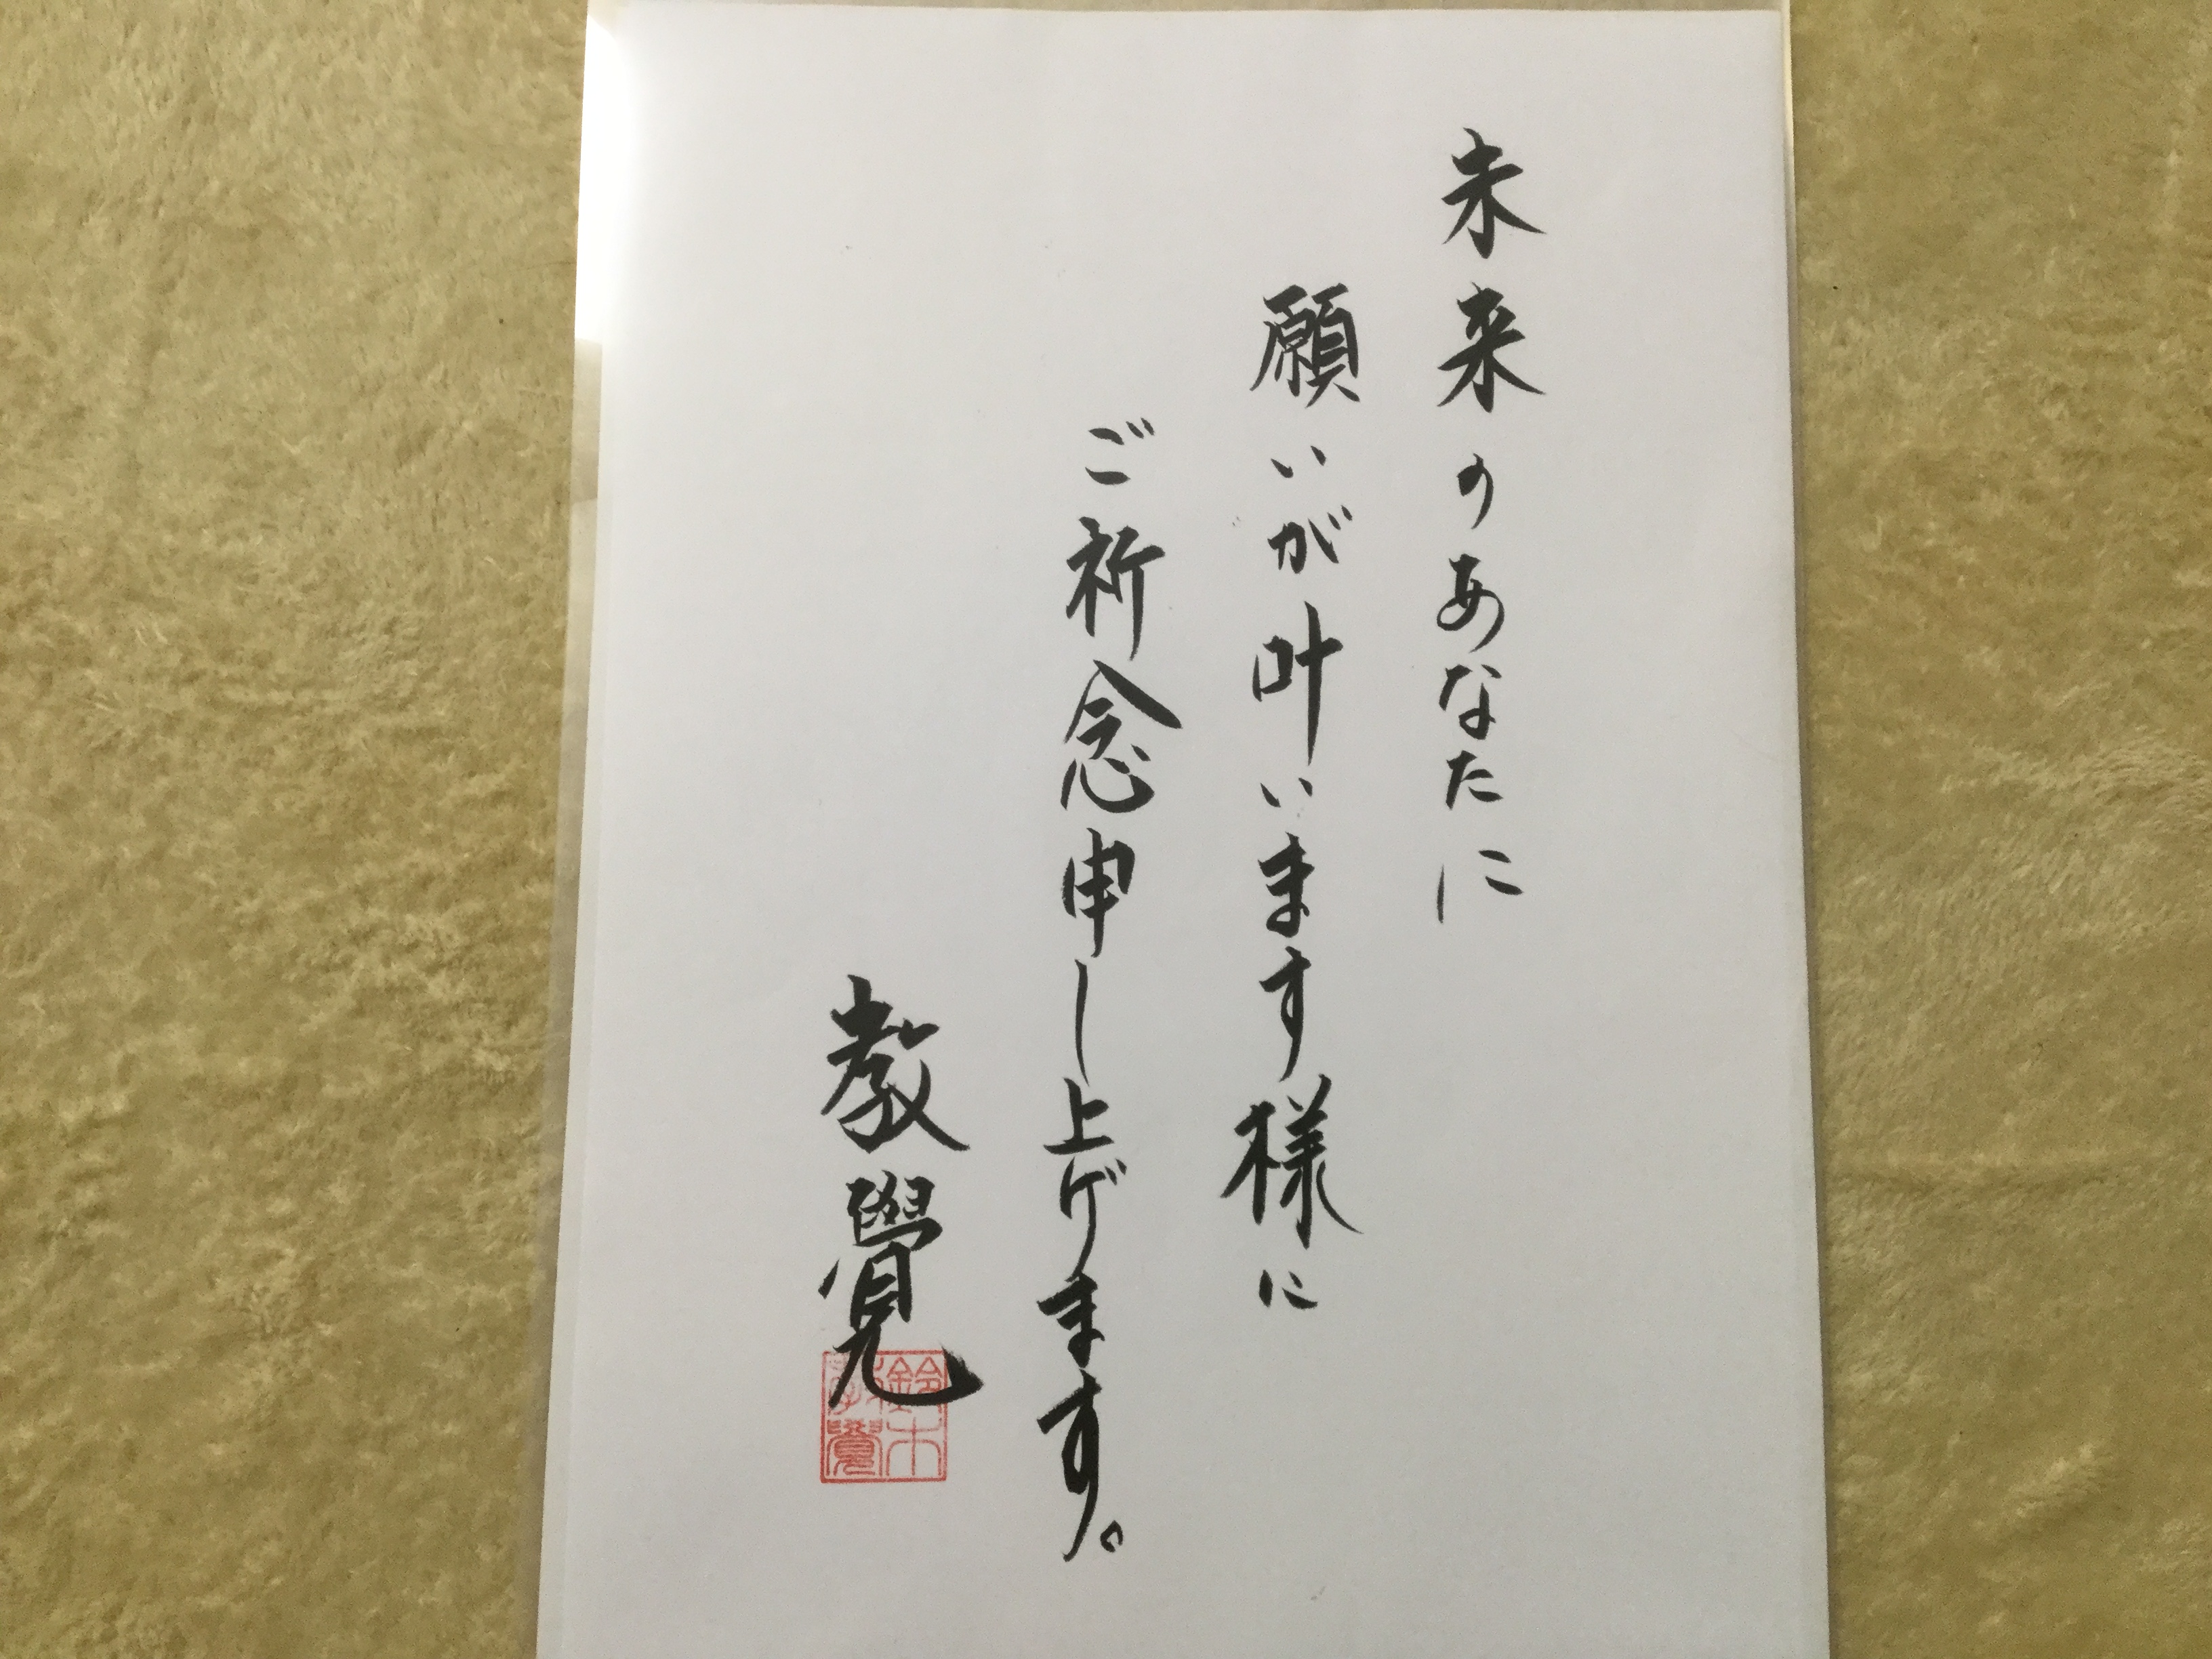 未来のあなたに
願いが叶います様に
ご祈念申し上げます。
教覺
鈴木
教覺